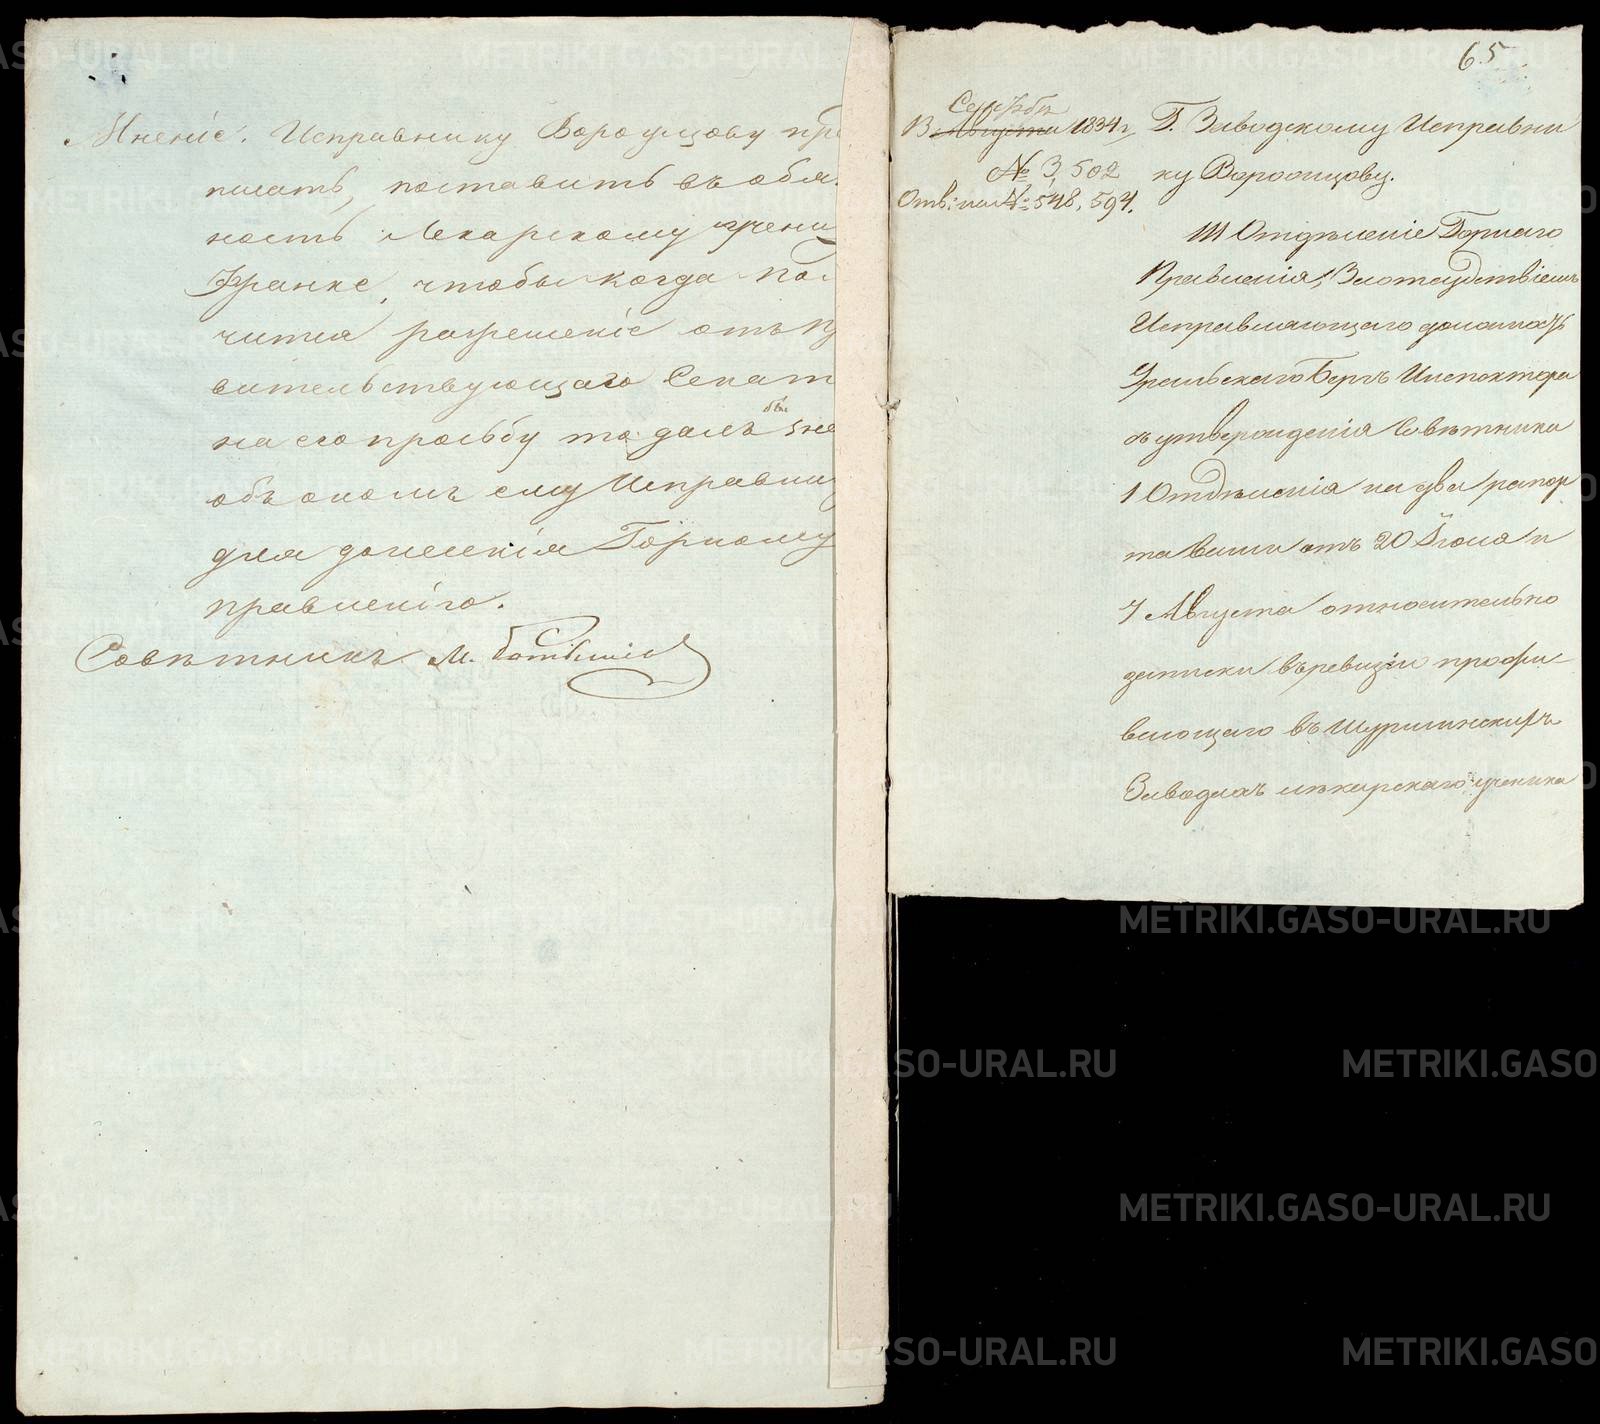 Мненіе. Исправнику Вороѵцову пре
писать, поставить въ обяз
ность Лекарскому учени
Франке, чтобы когда пол
чится разрешеніе отъ пр
вительствующаго Сенат
на его прозьбу то далъ бы зне
объ ономъ ему Исправни
для донесенія Горному
правленію.
Совѣтникъ М.
65
Сентбр
13 Августа 1834 г.
№ 3,502
Отв: на № 548, 594.
Г. Заводскому Исправни
ку Воронцову.
III Отдѣленіе Горнаго
Правленія, За отсудствіемъ
Исправляющаго должность
Уральскаго Бергъ Инспектора
съ утвержденія Совѣтника
1 Отдѣленія на два рапор
та Ваши отъ 20 Іюня и
7 Августа относительно
записки въ ревизіи прожи-
вающаго въ Шурминскихъ
Заводахъ лѣкарскаго ученика
METRIKI.GASO-URAL.RU